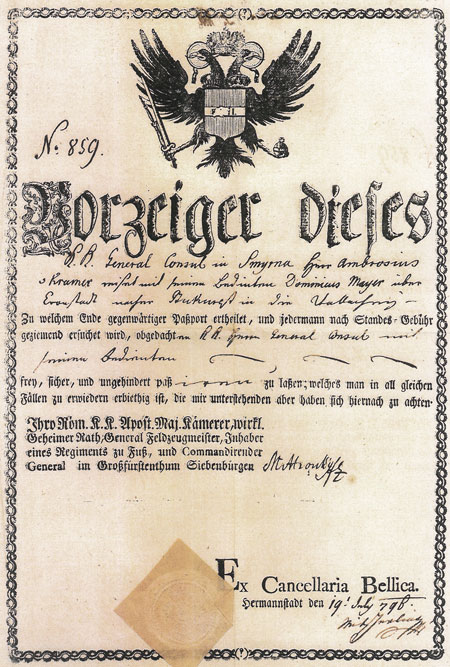 N. 859.
Vorzeiger dieses
K.K. General Consul in Smyrna Herr Ambrosius
Kramer reiset mit seinem Bedienten Dominicus Mayer über
Cronstadt nacher Bukurest in die Wallachey
Zu welchem Ende gegenwärtiger Paßport ertheilet, und jedermann nach Standes-Gebühr
geziemend ersuchet wird, obgedachten K.K. Herrn General Consul mit
seinem Bedienten
frey, sicher, und ungehindert paßiren zu laßen; welches man in all gleichen
Fällen zu erwiedern erbiethig ist, die mir unterstehenden aber haben sich hiernach zu achten.
Ihro Röm. K.K. Apost. Maj. Kämerer, wirkl.
Geheimer Rath, General Feldzeugmeister, Inhaber
eines Regiments zu Fuß, und Commandirender
General im Großfürstenthum Siebenbürgen
Ex Cancellaria Bellica.
Hermannstadt den 19t July 798.